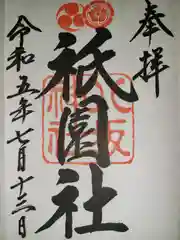 奉拝
八坂神社
祇園社
令和五年七月十三日